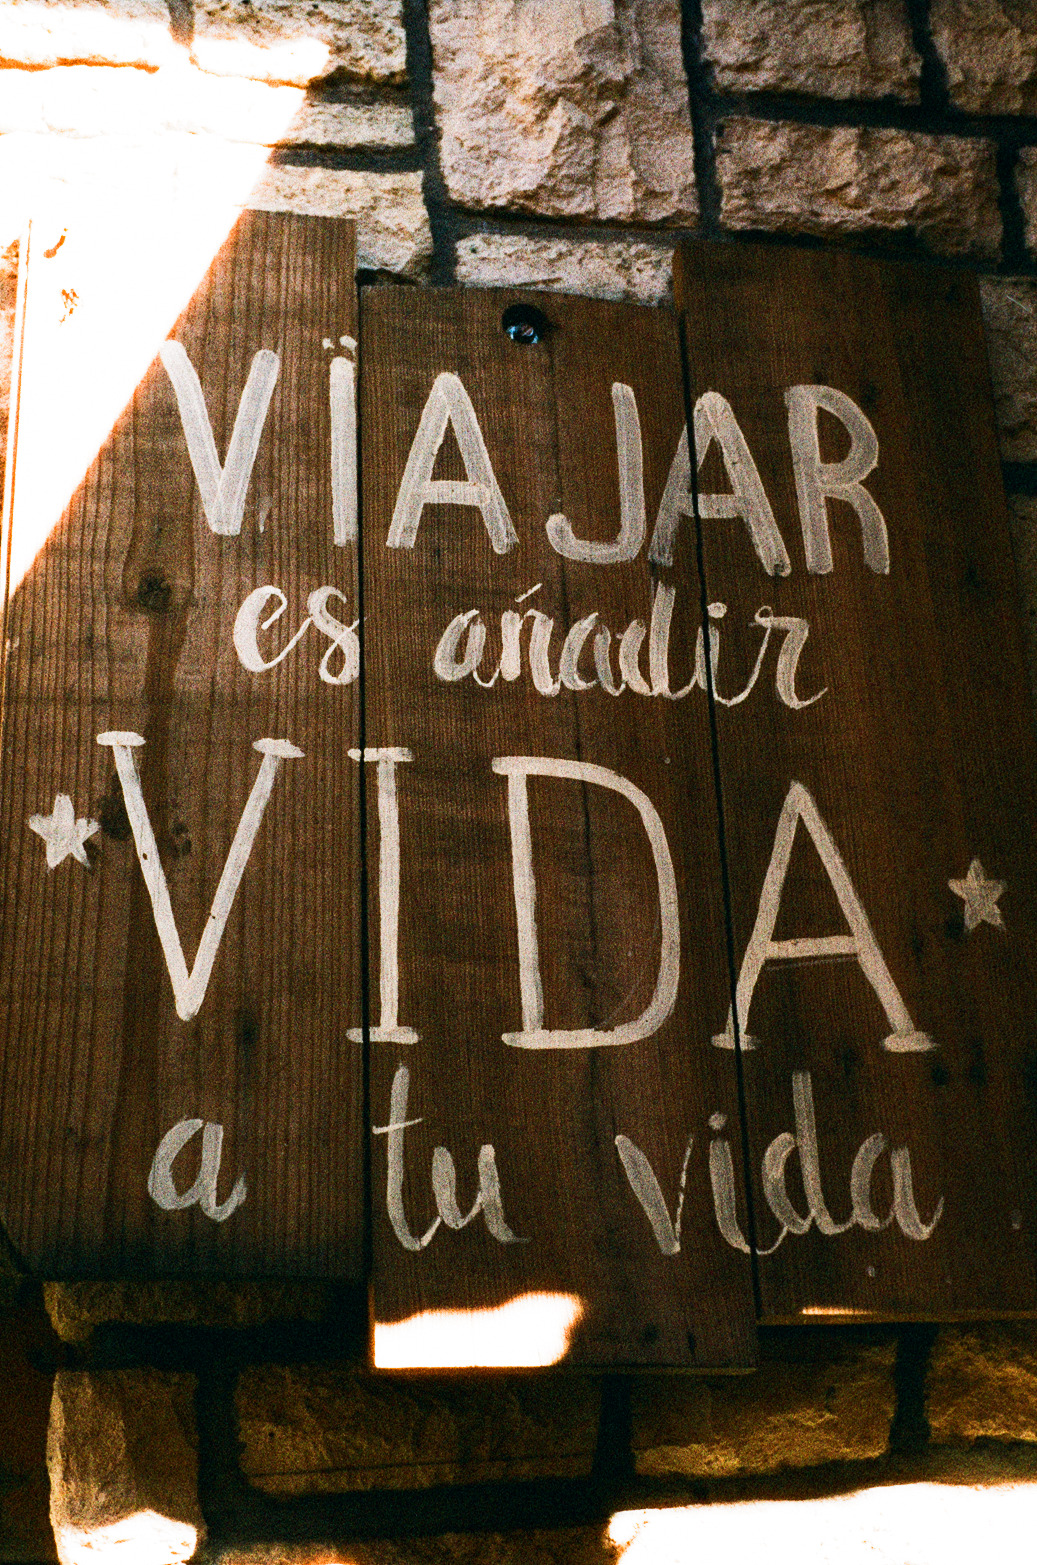 VÏAJAR
es añadir
VIDA
a tu vida